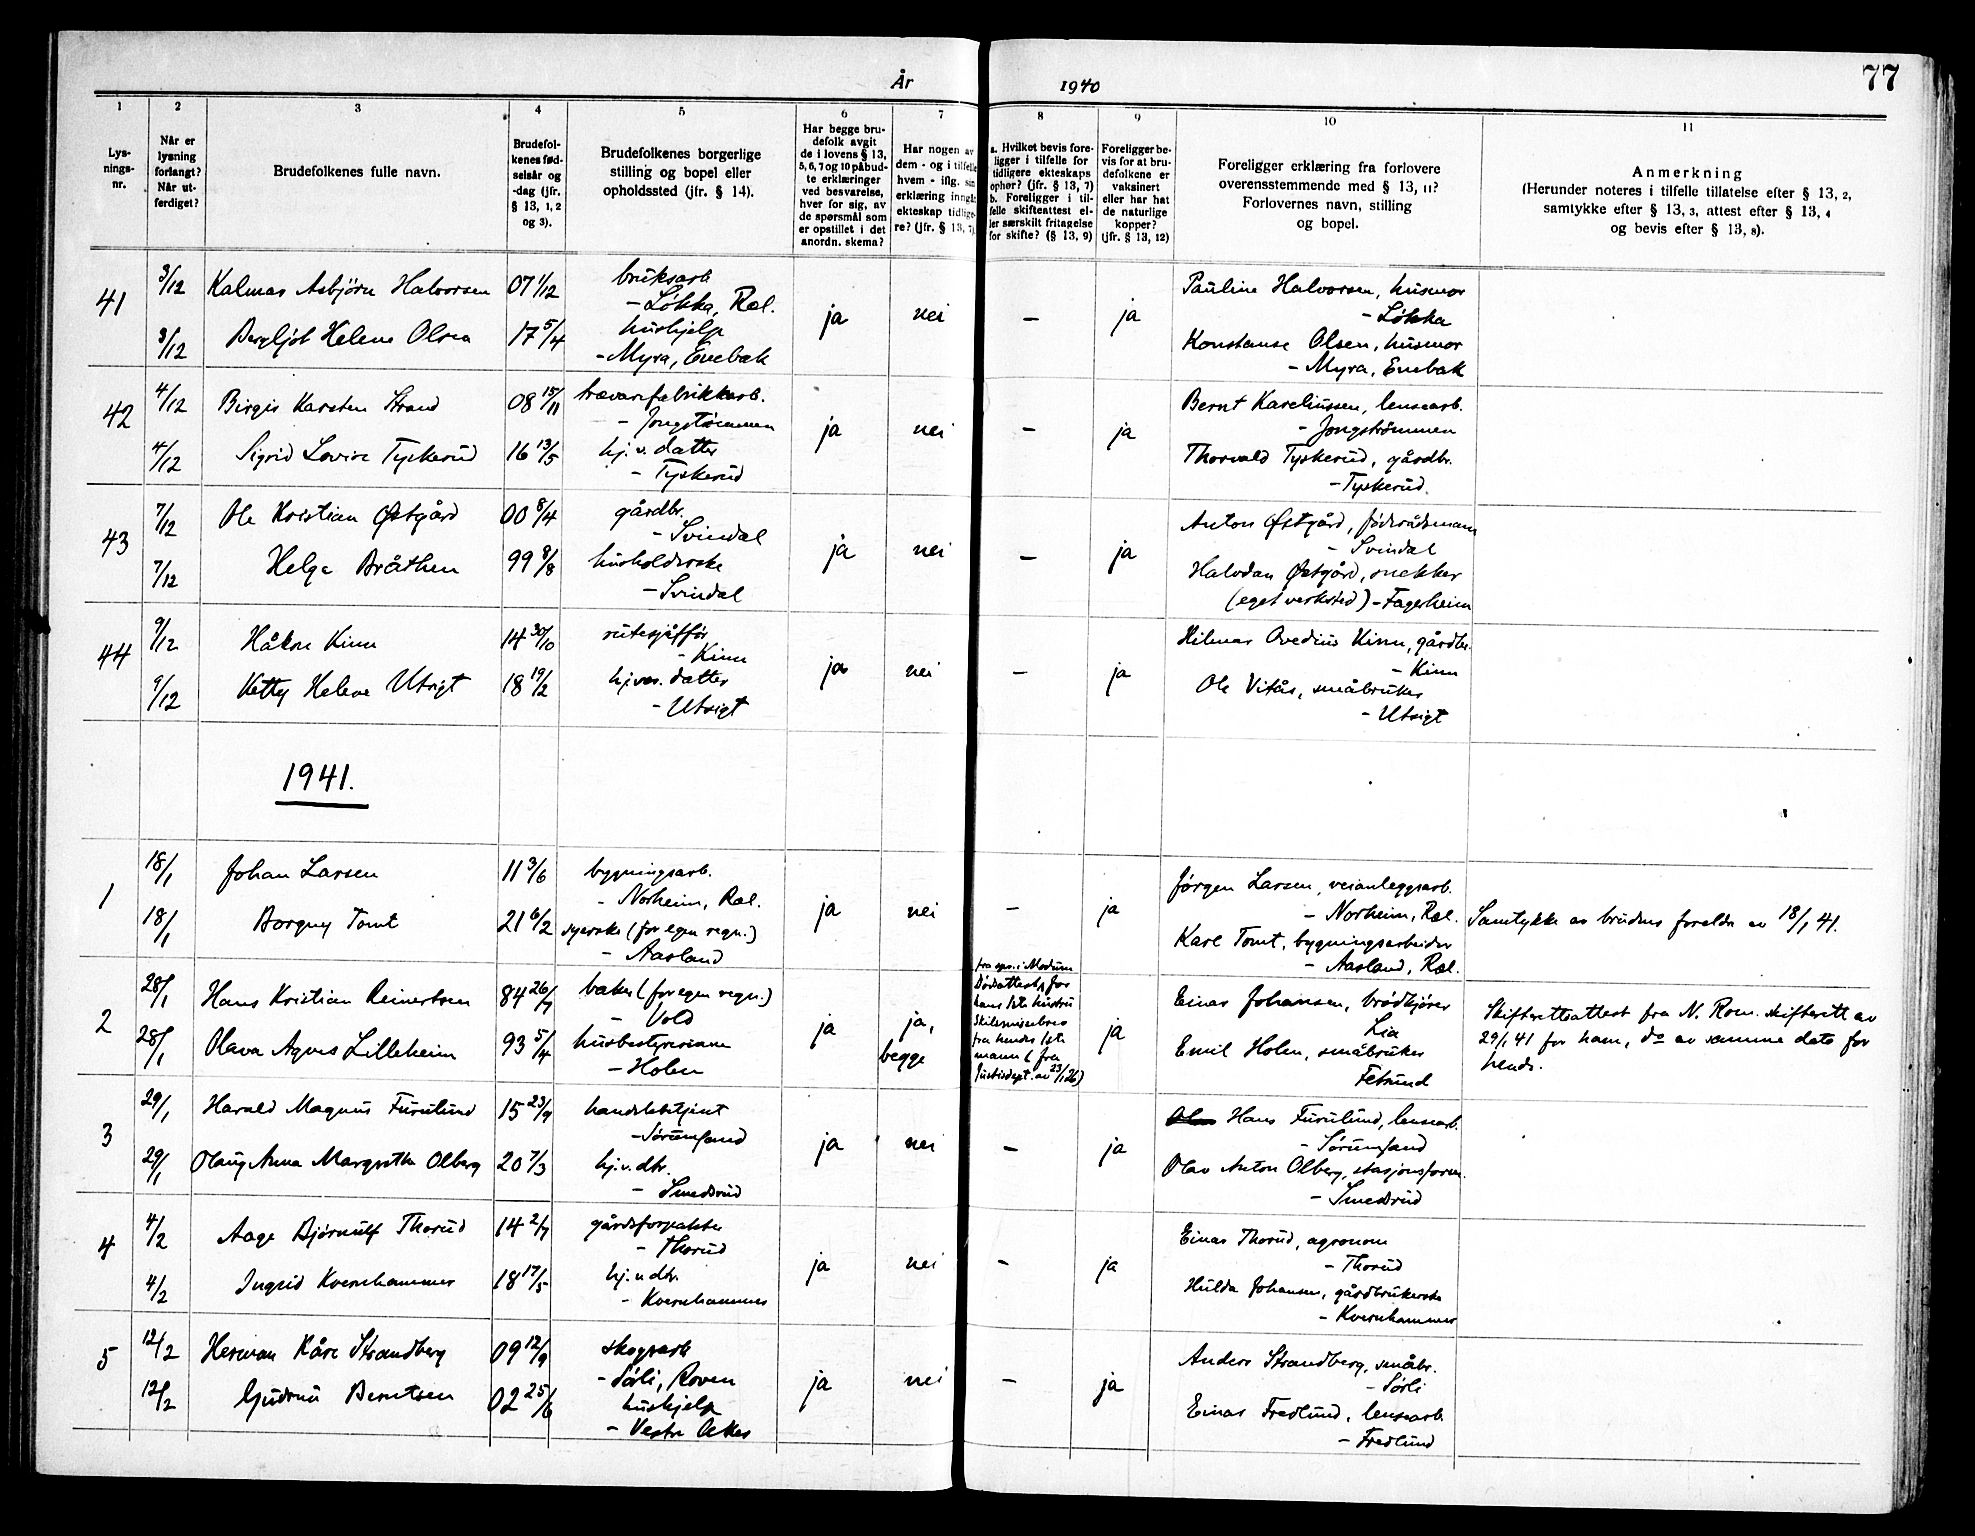 År 1940
77
1 2 3 4 5 6 7 8 9 10 11
Lysnings-nr.
Når er lysning forlangt? Når ut-ferdiget?
Brudefolkenes fulle navn.
Brudefol-kenes fød-selsår og -dag (jfr. § 13, 1, 2 og 3).
Brudefolkenes borgerlige stilling og bopel eller opholdssted (jfr. § 14).
Har begge bru-defolk avgit de i lovens § 13, 5, 6, 7 og 10 påbud-te erklæringer ved besvarelse, hver for sig, av de spørsmål som er opstillet i det anordn. skema?
Har nogen av dem - og i tilfelle hvem - iflg. sin erklæring inngt. ekteskap tidlige-re? (jfr. § 13, 7)
a. Hvilket bevis fore-ligger i tilfelle for tidligere ekteskaps ophør? (jfr. § 13, 7) b. Foreligger i til-felle skifteattest el-ler særskilt fritagelse for skifte? (§ 13, 9)
Foreligger be-vis for at bru-defolkene er vaksinert eller har hat de naturlige kopper? (jfr. § 13, 12)
Foreligger erklæring fra forlovere overensstemmende med § 13, 11? Forlovernes navn, stilling og bopel.
Anmerkning (Herunder noteres i tilfelle tillatelse efter § 13, 2, samtykke efter § 13, 3, attest efter § 13, 4 og bevis efter § 13, 8).
41 3/12 Kalmar Asbjörn Halvorsen 07 1/12 bruksarb. - Løkka, Ræl. ja nei - ja Pauline Halvorsen, husmor - Løkka
3/12 Bergljot Helene Olsen 17 5/4 hushjelp - Myra, Enebak Konstanse Olsen, husmor - Myra, Enebak
42 4/12 Birger Karsten Strand 08 15/11 trævarefabrikkarb. - Jongstömmen ja nei - ja Bernt Kareliussen, lensearb. - Jongströmmen
4/12 Sigrid Lovise Tyskerud 16 13/5 hj.v. datter - Tyskerud Thorvald Tyskerud, gårdbr. - Tyskerud.
43 7/12 Ole Kristian Østgård 00 8/4 gårdbr. - Svindal ja nei - ja Anton Østgård, födsrådsmann - Svindal
7/12 Helga Bråthen 99 8/8 husholderske - Svindal Halvdan Østgård, snekker (eget verksted) - Fagerheim
44 9/12 Håkon Kinn 14 30/10 rutesjåffør - Kinn ja nei - ja Hilmar Ovedius Kinn, gårdbr. - Kinn
9/12 Ketty Helene Utsigt 18 19/2 hj.ver. datter - Utsigt Ole Vitås, småbruker - Utsigt
1941.
1 18/1 Johan Larsen 11 3/6 bygningsarb. - Norheim, Ræl. ja nei - ja Jørgen Larsen, veianleggsarb. - Norheim, Ræl. Samtykke av brudens foreldre av 18/1 41.
18/1 Borgny Tomt 21 6/2 syerske (for egen regn.) - Aasland Karl Tomt, bygningsarbeider - Aasland, Ræl.
2 28/1 Hans Kristian Reinertsen 84 26/7 baker (for egen regn.) - Vold ja ja, begge fra spr. i Modum Dödsattest for hans 1ste hustru Skilsmissebrev fra hendes 1ste mann (fra Justisdept. av 23/1 26) ja Einar Johansen, brödkjører Lia Skifterettsattest fra N. Rom. skifterett av 29/1 41 for ham, do av samme dato for hende.
28/1 Olava Agnes Lilleheim 93 5/4 husbestyrerinne - Holen Emil Holen, småbruker Fetsund
3 29/1 Harald Magnus Furulund 15 23/9 handelsbetjent - Sørumsand ja nei - ja Hans Furulund, lensearb. - Sørumsand
29/1 Olaug Anna Margrethe Olberg 20 7/3 hj.v.dtr. - Smedsrud Olav Anton Olberg, stasjonsform. - Smedsrud
4 4/2 Aage Bjørnulf Thorud 14 2/7 gårdsforpakter - Thorud ja nei - ja Einar Thorud, agronom - Thorud
4/2 Ingrid Kvernhammer 18 17/5 hj.v.dtr. - Kvernhammer Hulda Johansen, gårdbrukerske - Kvernhammer
5 12/2 Herman Kåre Strandberg 09 12/9 skogsarb. - Sørli, Roven ja nei - ja Anders Strandberg, småbr. - Sørli
12/2 Gudrun Berntsen 02 25/6 hushjelp - Vestre Aker Einar Fredlund, lensearb. - Fredlund